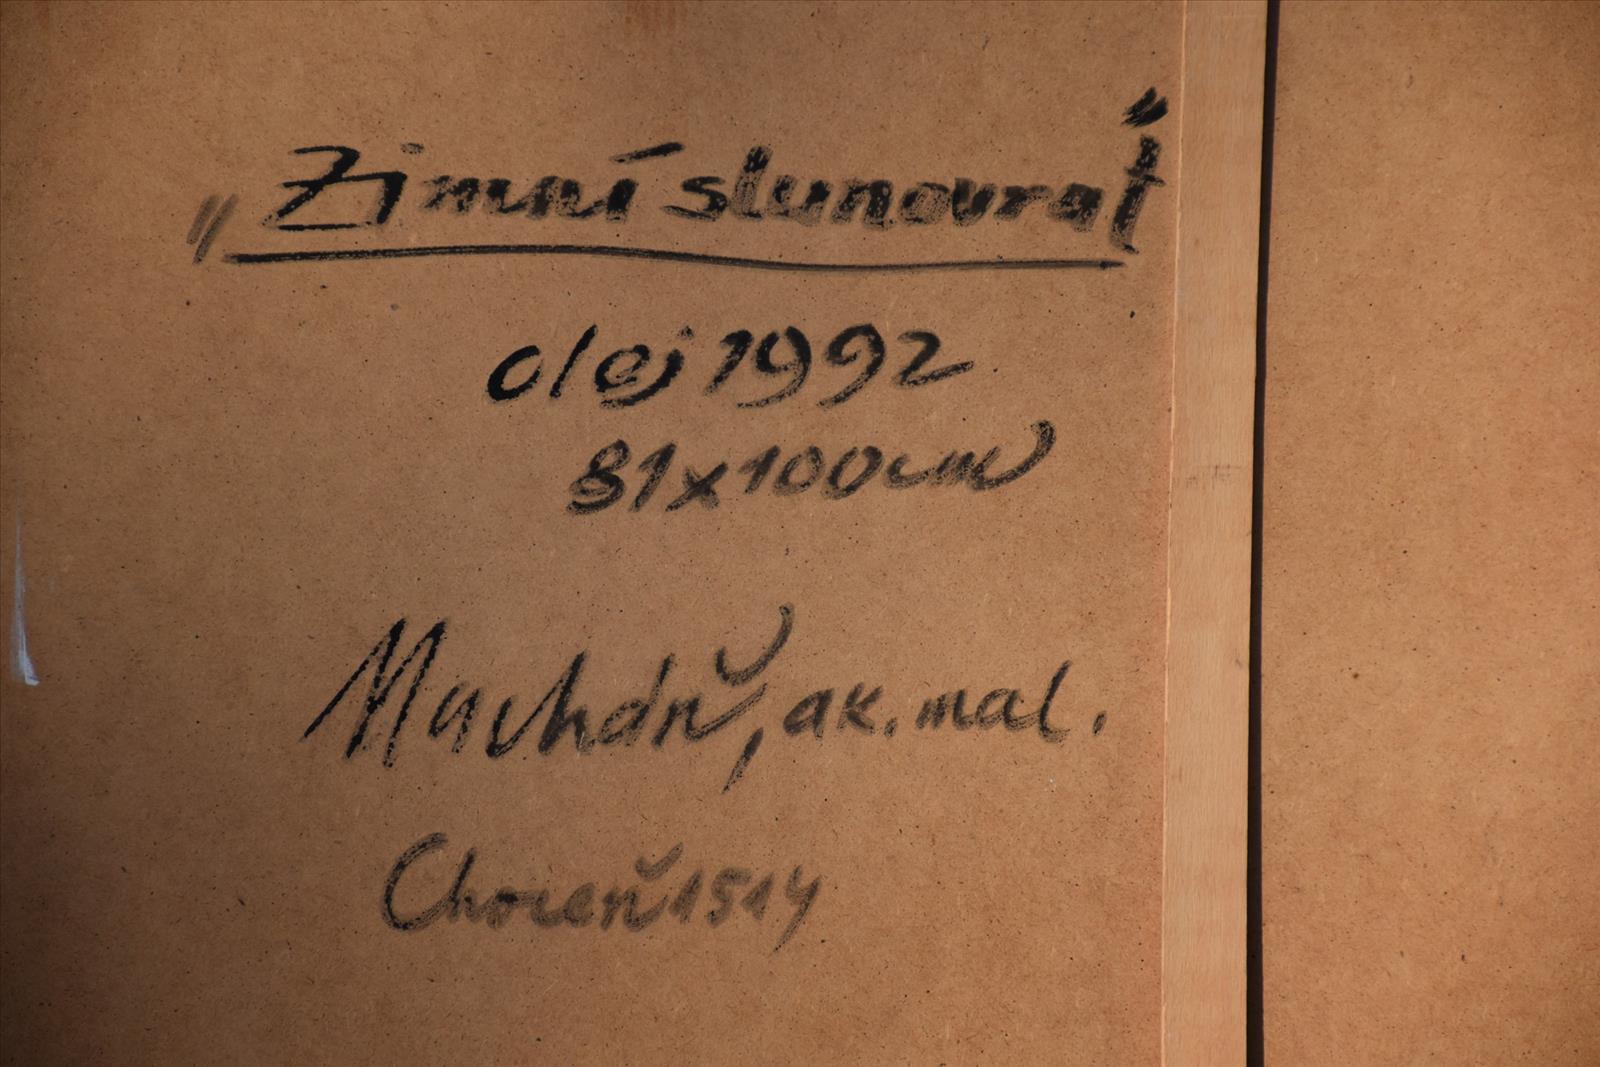 „Zimní slunovrat"
olej 1992
81x100cm
Macháň, ak. mal.
Choceň 1514